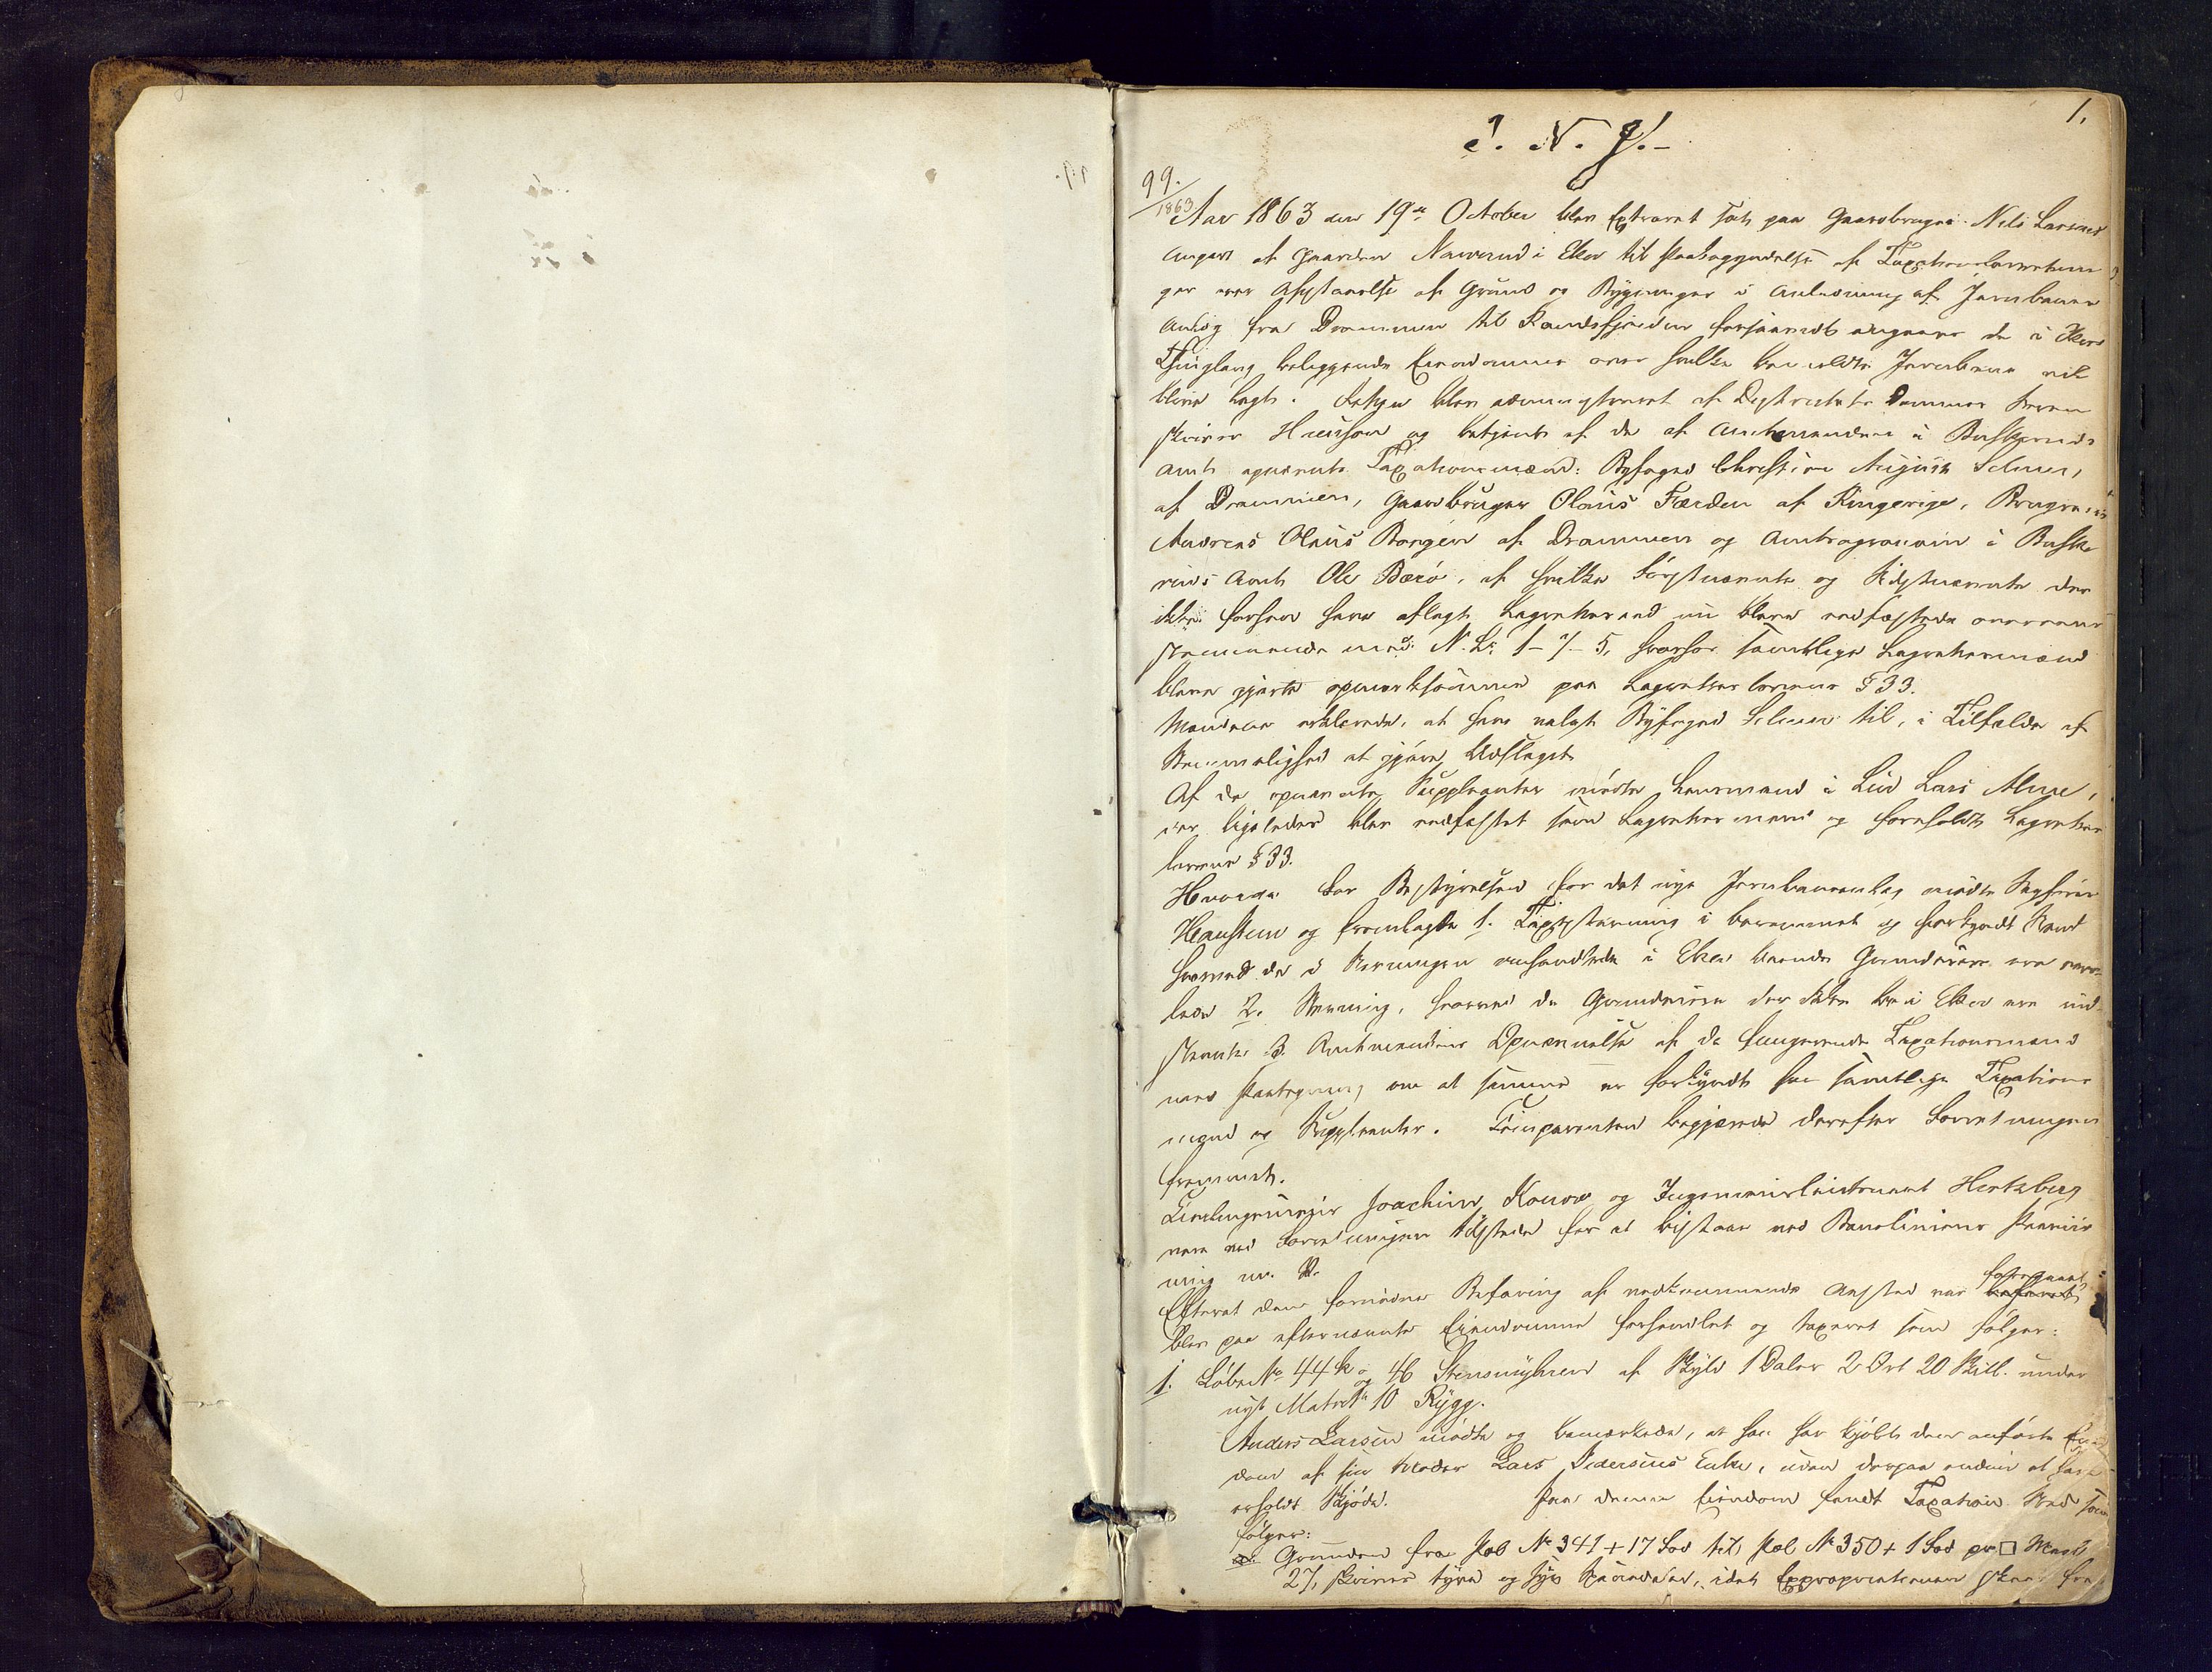 1.
I. N. J.
99.
1863
Aar 1863 den 19de October blev Extraret sat paa Gaardbruger Nils Larsens
af Gaarden i Eker til Paabegyndelse af Taxationsforretnin
ger over Afstaaelse af Grund og Bygninger i Anledning af Jernbane
Anlæg fra Drammen til Randsfjorden forsaavidt angaar de i Ekers
Thinglaug beliggende Eiendomme over hvilke bemeldte Jernbane vil
blive lagt. Retten blev administreret af Districtets Dommer Soren
skriver Hansson og betjent af de af Amtmanden i Buskeruds
Amt opnævnte Taxationsmænd: Byfoged Christian August Selmer,
af Drammen, Gaardbruger Olaus Færden af Ringerige,
Andreas Olaus Borgen af Drammen og Amtsagronom i Buske
ruds Amt Ole Barö, af hvilke Förstnævnte og Sidstnævnte der
ikke forhen have aflagt Lagrettesed nu bleve edfæstede overeens
stemmende med N. L. 1-7-5, hvorhos samtlige Lagrettesmænd
bleve gjorte opmærksomme paa Lagretteslovens § 33.
Mændene erklærede, at have valgt Byfoged Selmer til, i Tilfælde af
Stemmelighed at gjøre Udslaget.
Af de opnævnte Suppleanter mødte Lensmand i Lier Lars
der ligeledes blev edfæstet som Lagrettesmand og foreholdt Lagrettes
lovens § 33.
For Bestyrelsen for det nye Jernbaneanlæg mødte Sagfører
Hansteen og fremlagde 1. Taxtstævning i berammet og forkyndt Stand
hvorved de i Stævningen ombandlede i Eker boende Grundeiere ere
2. Stævning, hvorved de Grundeiere der ikke bo i Eker ere ind
stævnte 3. Amtmandens Opnævnelse af de fungerende Taxationsmænd
med Paategning om at samme er forkyndt for samtlige Taxations
mænd og Suppleanter. Comparenten begjærede derefter Forretningen
fremmet.
Joachim Konow og Ingenieurlieutenant Hertzberg
vare ved Forretningen tilstede for at bistaae ved Banelinien Paaviis
ning m. V.
Efterat den fornødne Befaring af vedkommende Aasted var foregaaet
blev paa efternævnte Eiendomme forhandlet og taxeret som følger:
1. Løbe No 44 k og 46 Stensmyhren af Skyld 1 Daler 2 Ort 20 Skill. under
nyt Matr No 10 Rygg.
Anders Larsen mødte og bemærkede, at han har kjøbt den anførte Eien
dom af sin Moder Lars Pedersens Enke, uden derpaa endnu at have
erholdt Skjöde. Paa denne Eiendom fandt Taxation Sted som
følger:
a. Grunden fra Pæl No 341 + 17 Fod til Pæl No 350 + 1 Fod pr. □ Mark
27, skriver tyve og syv Specidaler, idet Expropriationen skeer fra